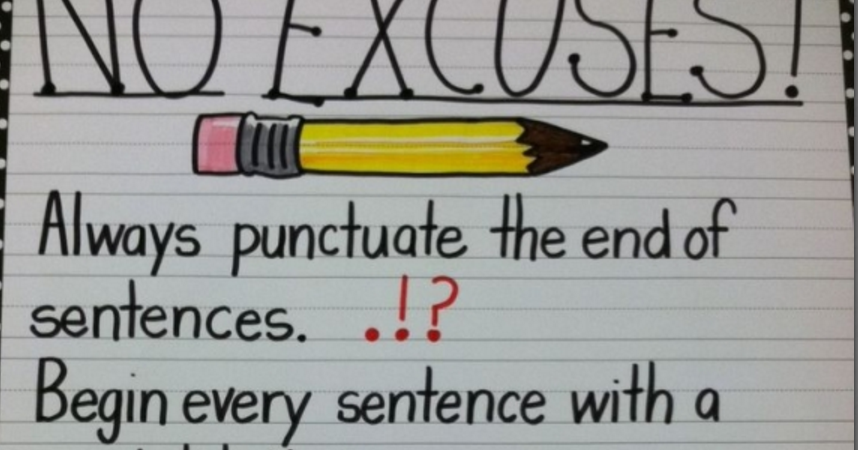 NO EXCUSES!
Always punctuate the end of
sentences. .!?
Begin every sentence with a